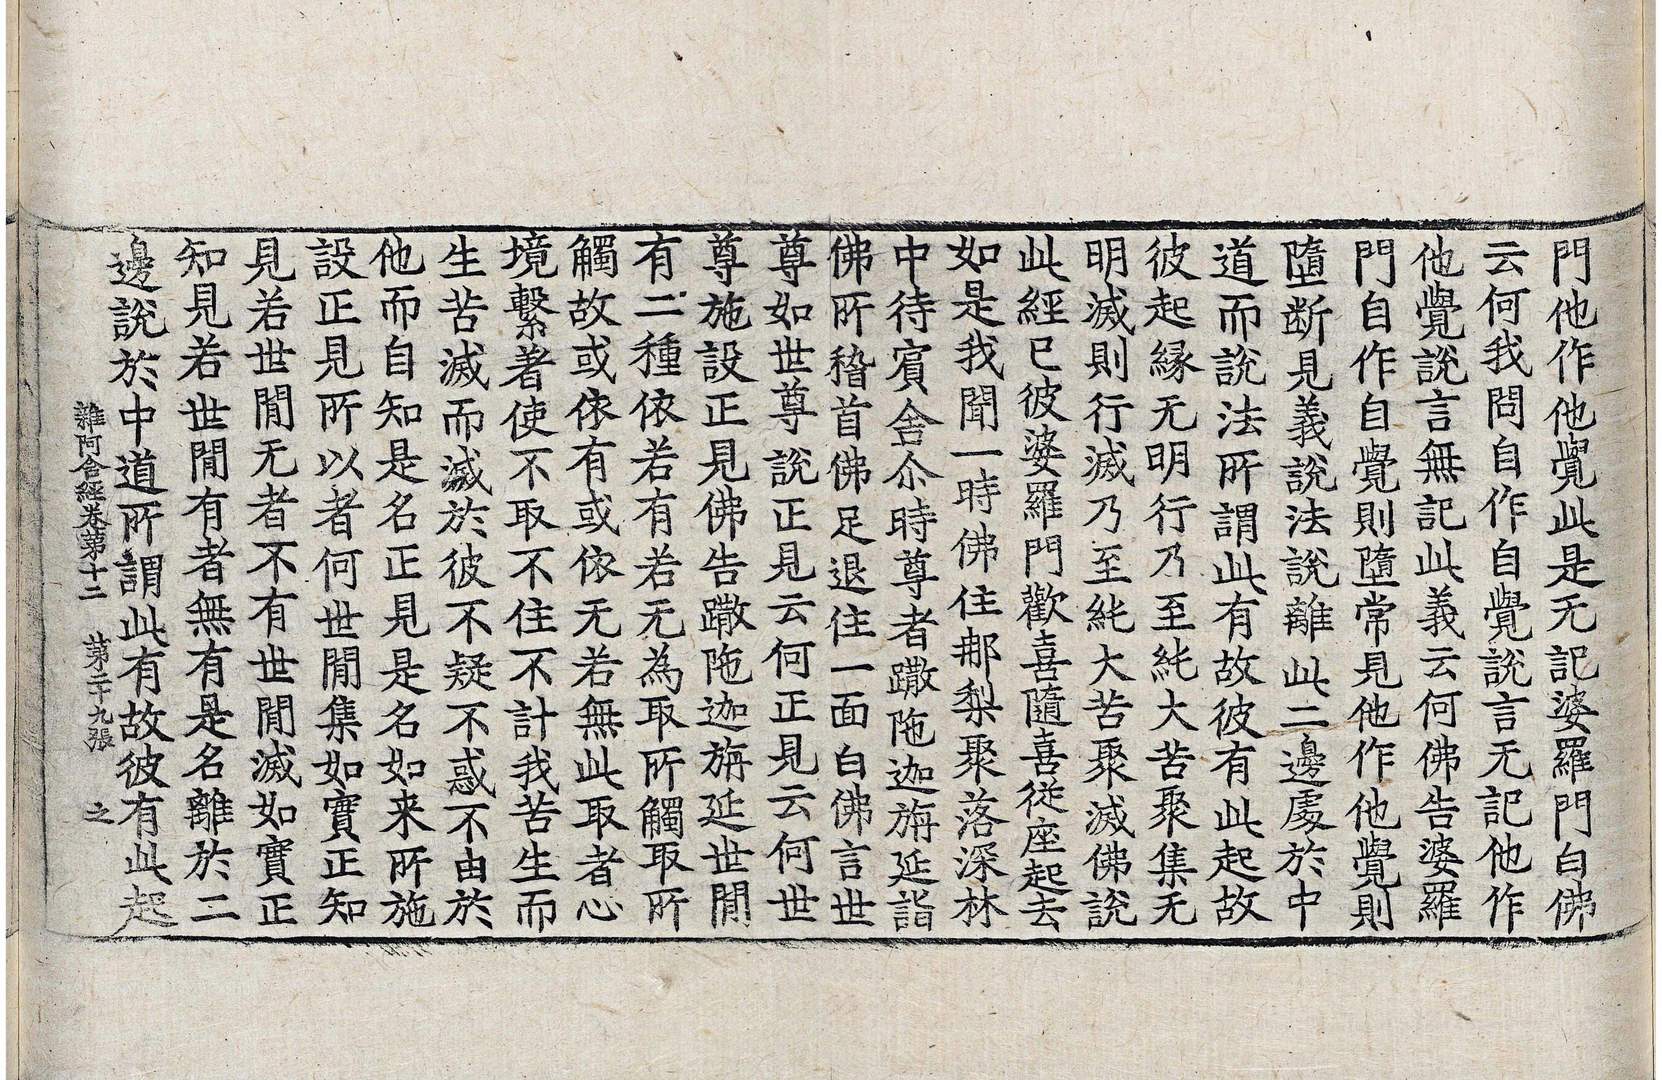 門他作他覺此是无記婆羅門白佛
云何我問自作自覺說言无記他作
他覺說言無記此義云何佛告婆羅
門自作自覺則墮常見他作他覺則
墮断見義說法說離此二邊處於中
道而說法所謂此有故彼有此起故
彼起縁无明行乃至純大苦聚集无
明滅則行滅乃至純大苦聚滅佛說
此經已彼婆羅門歡喜隨喜從座起去
如是我聞一時佛住那梨聚落深林
中待賔舍尒時尊者𨅖陁迦旃延詣
佛所稽首佛足退住一面白佛言世
尊如世尊說正見云何正見云何世
尊施設正見佛告𨅖陁迦旃延世間
有二種依若有若无為取所觸取所
觸故或依有或依无若無此取者心
境繫著使不取不住不計我苦生而
生苦滅而滅於彼不疑不惑不由於
他而自知是名正見是名如来所施
設正見所以者何世間集如實正知
見若世間无者不有世間滅如實正
知見若世間有者無有是名離於二
邊說於中道所謂此有故彼有此起
雜阿含經卷第十二 第二十九張 之